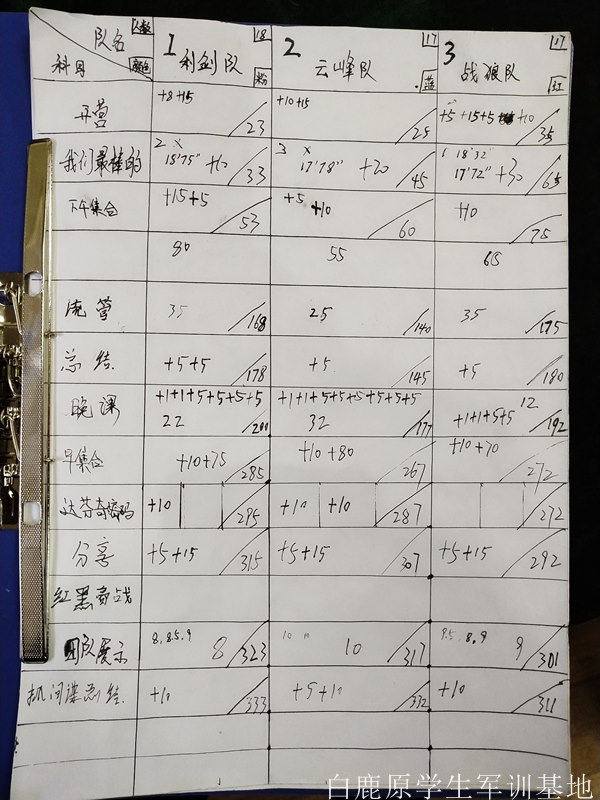 队名 人数 1 利剑队 18 2 云峰队 17 3 战狼队 17
科目 颜色 粉 蓝 红
开营 +8+15 23 +10+15 25 +5+15+5 +10 35
我们最棒的 2 x 18'75" +10 33 3 x 17'78" +20 45 1 18'32" 17'72" +30 65
下午集合 +15+5 53 +5 +10 60 +10 75
80 55 65
流管 35 168 25 140 35 175
总结 +5+5 178 +5 145 +5 180
晚课 +1+1+5+5+5+5 22 200 +1+1+5+5+5+5+5+5 32 177 +1+1+5+5 12 192
早集合 +10+75 285 +10+80 267 +10+70 272
达芬奇密码 +10 295 +10 +10 287 272
分享 +5+15 315 +5+15 307 +5+15 292
红黑商战
团队展示 8.8.5.9 8 323 10 10 10 317 9.5.8.9 9 301
总结 +10 333 +5+10 332 +10 311
白鹿原学生军训基地